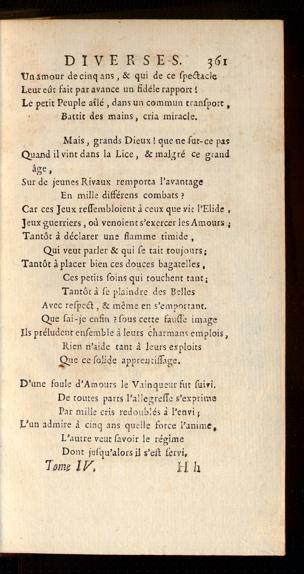 DIVERSES. 361
Un amour de cinq ans, & qui de ce spectacle
Leur eût fait par avance un fidéle rapport !
Le petit Peuple aîlé, dans un commun transport,
Battit des mains, cria miracle.
Mais, grands Dieux ! que ne fut-ce pas
Quand il vint dans la Lice, & malgré ce grand
âge,
Sur de jeunes Rivaux remporta l'avantage
En mille différens combats ?
Car ces Jeux ressembloient à ceux que vit l'Elide,
Jeux guerriers, où venoient s'exercer les Amours ;
Tantôt à déclarer une flamme timide,
Qui veut parler & qui se tait toujours ;
Tantôt à placer bien ces douces bagatelles,
Ces petits soins qui touchent tant ;
Tantôt à se plaindre des Belles
Avec respect, & même en s'emportant.
Que sai-je enfin ? sous cette fausse image
Ils préludent ensemble à leurs charmans emplois,
Rien n'aide tant à leurs exploits
Que ce solide apprentissage.
D'une foule d'Amours le Vainqueur fut suivi.
De toutes parts l'allegresse s'exprime
Par mille cris redoublés à l'envi ;
L'un admire à cinq ans quelle force l'anime,
L'autre veut savoir le régime
Dont jusqu'alors il s'est servi.
Tome IV. H h